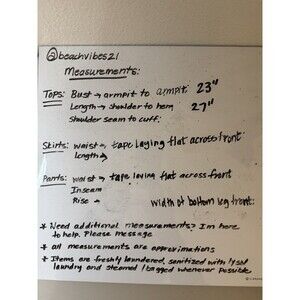 @beachvibes21
Measurements:
Tops: Bust → armpit to armpit 23"
Length → shoulder to hem 27"
Shoulder seam to cuff:
Skirts: waist → tape laying flat across front:
Length →
Pants: waist → tape laying flat across front
Inseam
Rise - width of bottom leg front:
* Need additional measurements? I'm here
to help. Please message
* all measurements are approximations
* Items are freshly laundered, sanitized with lysol
laundry and steamed/bagged whenever possible